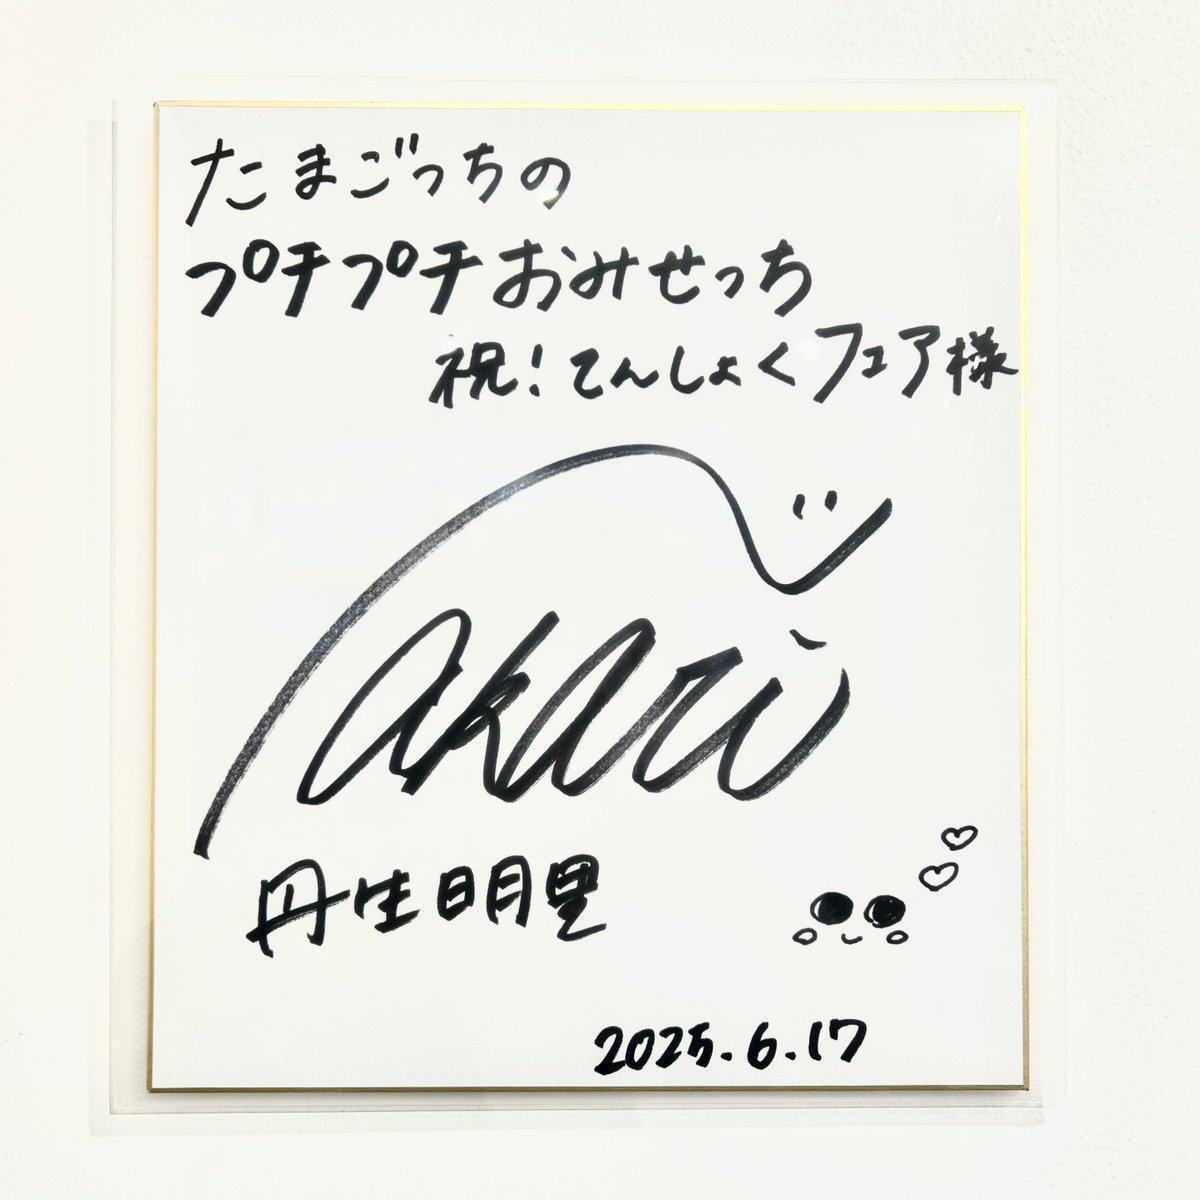 たまごっちの
プチプチおみせっち
祝!てんしょくフェア様
akari
丹生明里
2025.6.17